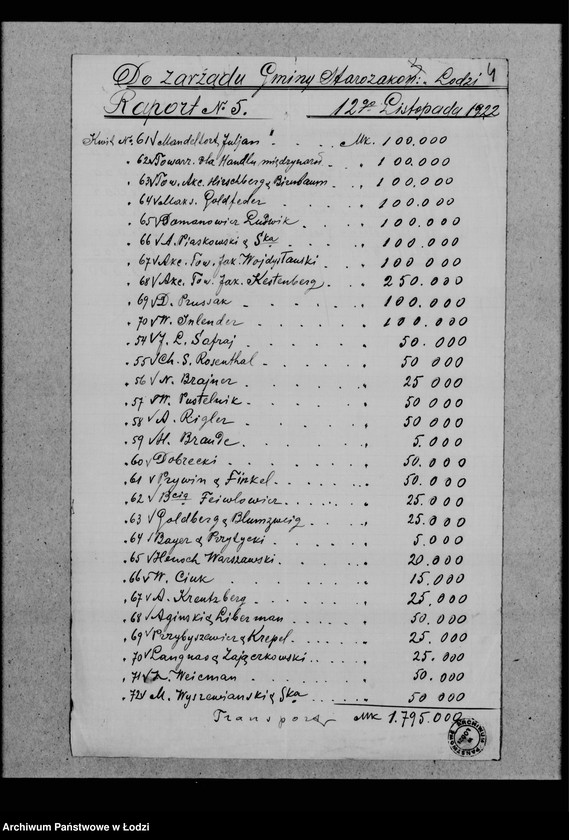 4
Do Zarządu Gminy Starozakon: Łodzi 4
Raport № 5. 12go Listopada 1922
Kwit № 61 √ Mandeltort, Juljan " . . . . Mk. 100.000
" 62 √ Towarz. dla Handlu międzynaro . . " 100.000
" 63 √ Tow. Akc. Hirschberg & Birnbaum . . " 100.000
" 64 √ Maks. Goldfeder . . . . " 100.000
" 65 √ Domanowicz Ludwik . . . " 100.000
" 66 √ A. Piaskowski & Ska . . . . " 100.000
" 67 √ Akc. Tow. fax. Wojdysławski . . " 100 000
" 68 √ Akc. Tow. fax. Kestenberg . . " 250.000
" 69 √ D. Prussak . . . . . " 100.000
" 70 √ W. Inlender . . . . . " 100.000
" 54 √ J. L. Safraj . . . . . " 50.000
" 55 √ Ch. S. Rosenthal . . . . " 50 000
" 56 √ N. Brajner . . . . . " 25 000
" 57 √ W. Pustelnik . . . . . " 50 000
" 58 √ A. Rigler . . . . . " 50 000
" 59 √ H. Brande . . . . . " 5.000
" 60 √ Dobrecki . . . . . " 50.000
" 61 √ Prywin & Finkel . . . . " 50.000
" 62 √ Bcia Feiwlowicz . . . . . " 25.000
" 63 √ Goldberg & Blumzweig . . . . " 25.000
" 64 √ Bayer & Przytycki . . . . " 5.000
" 65 √ Henoch Warszawski . . . . " 20.000
" 66 √ W. Ciuk . . . . . " 15.000
" 67 √ A. Kreutzberg . . . . . " 25 000
" 68 √ Aginski & Liberman . . . . " 50.000
" 69 √ Przybyszewicz & Krepel . . . . " 25.000
" 70 √ Langnas & Zajączkowski . . . . " 25.000
" 71 √ L. Weicman . . . . . " 50.000
" 72 √ M. Wyszewianski & Ska . . . . " 50 000
Transport Mk 1.795.000
ARCHIWUM PAŃSTWOWE
Archiwum Państwowe w Łodzi